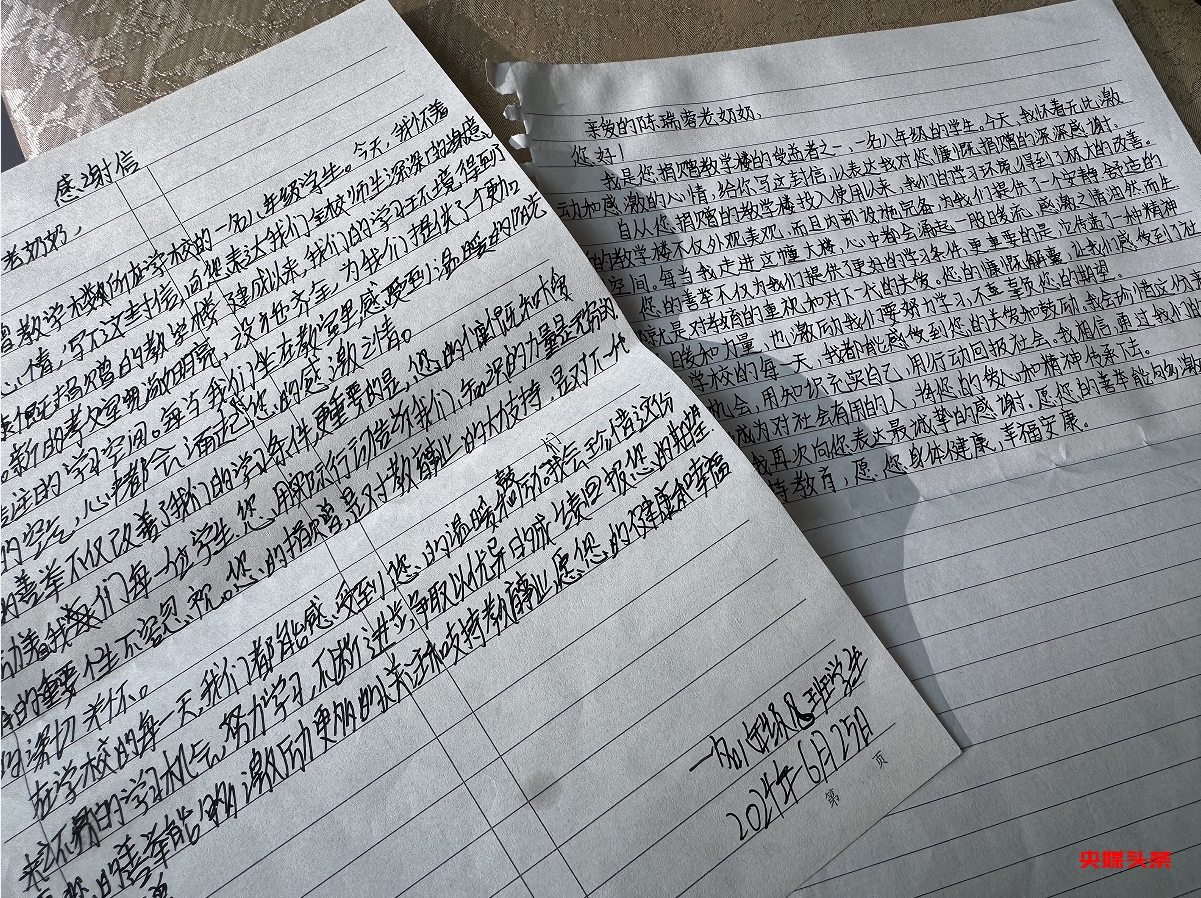 感谢信
老奶奶,
教学楼所在学校的一名八年级学生。今天,我怀着
心情,写下这封信,向您表达我们全校师生深深的谢意。
您捐赠的教学楼建成以来,我们的学习环境得到了
新的教室宽敞明亮,设施齐全,为我们提供了一个更加
专注的学习空间。每当我们坐在教室里,感受到温暖的阳光
的空气,心中都会涌起对您的感激之情。
善举不仅改善了我们的学习条件,更重要的是,您的慷慨和大爱
励着我们每一位学生。您用实际行动告诉我们,知识的力量是无穷的
的重要性不容忽视。您的捐赠,是对教育事业的大力支持,是对下一代
的深切关怀。
在学校的每一天,我们都能感受到您的温暖和鼓励。我们会珍惜这份
来之不易的学习机会,努力学习,不断进步,争取以优异的成绩回报您的期望
的善举能够激励更多的人关注和支持教育事业,愿您的健康和幸福
一名八年级八班学生
2024年6月25日
第 页
亲爱的陈瑞蓉老奶奶,
您好!
我是您捐赠教学楼的受益者之一,一名八年级的学生。今天,我怀着无比激
动和感激的心情,给你写这封信,以表达我对您慷慨捐赠的深深感谢。
自从您捐赠的教学楼投入使用以来,我们的学习环境得到了极大的改善。
的教学楼不仅外观美观,而且内部设施完备,为我们提供了一个安静、舒适的
空间。每当我走进这幢大楼,心中都会涌起一股暖流,感激之情油然而生
您的善举不仅为我们提供了更好的学习条件,更重要的是,它传递了一种精神
就是对教育的重视和对下一代的关爱。您的慷慨解囊,让我们感受到了社
暖和力量,也激励我们要努力学习,不辜负您的期望。
学校的每一天,我都能感受到您的关爱和鼓励。我会珍惜这份来
机会,用知识充实自己,用行动回报社会。我相信,通过我们的
成为对社会有用的人,将您的爱心和精神传承下去。
我再次向你表达最诚挚的感谢。愿您的善举能够激
持教育,愿您身体健康、幸福安康。
央媒头条